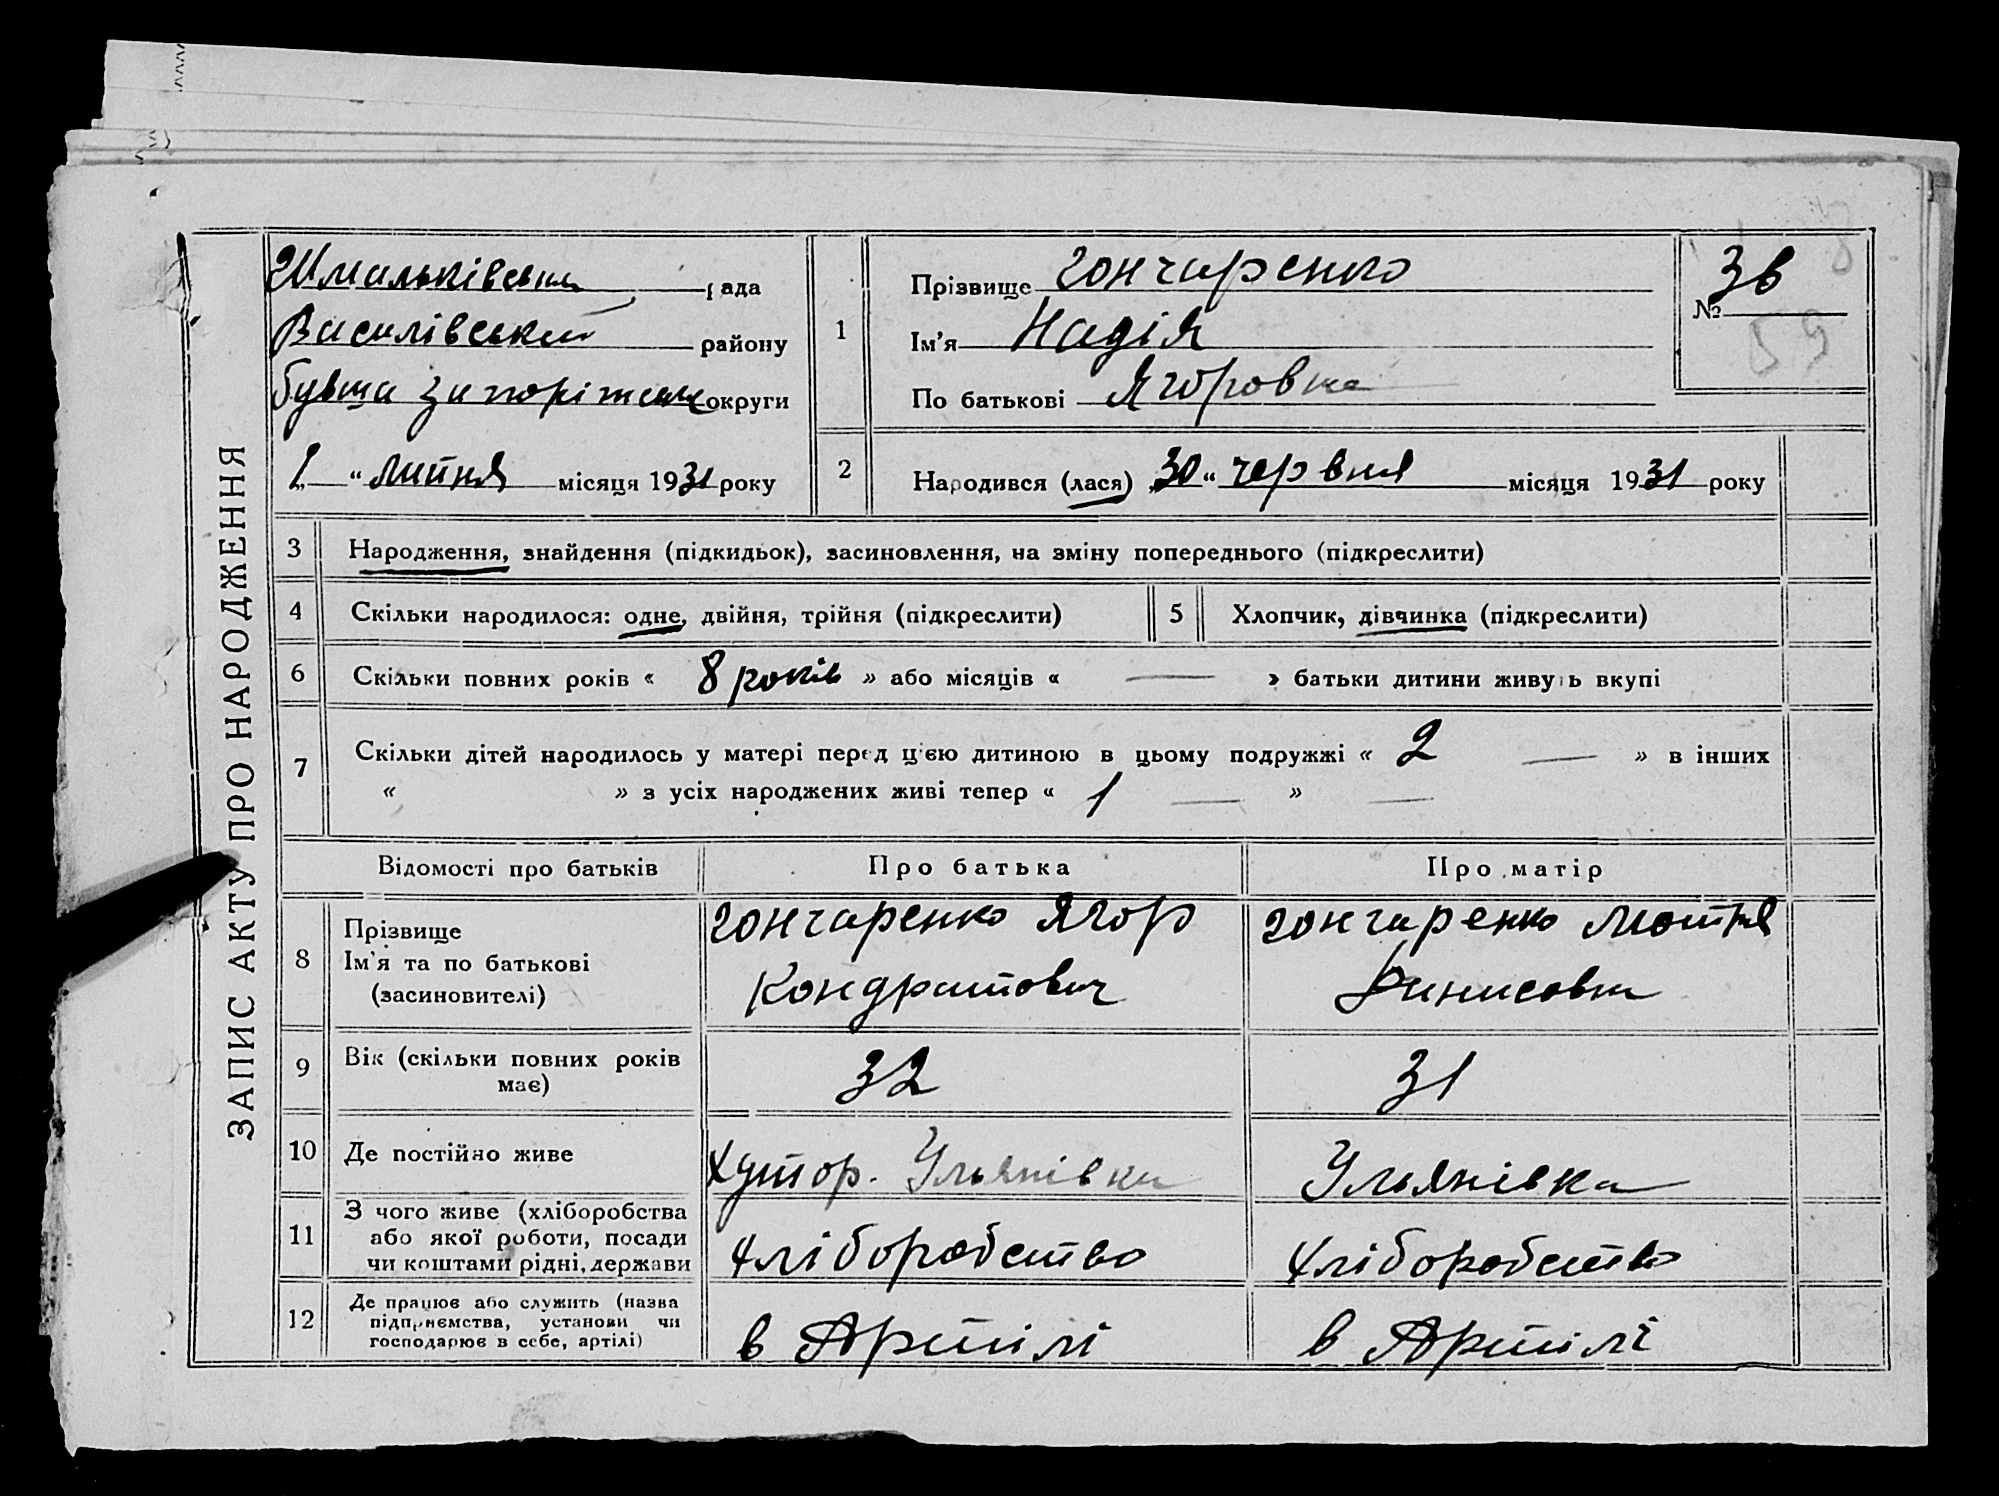 ЗАПИС АКТУ ПРО НАРОДЖЕННЯ
рада
Василівський району
бувша Запоріжська округи
1 „ липня місяця 1931 року
1
Прізвище Гончаренко
Ім'я Надія
По батькові Ягоровна
№ 36
59
2
Народився (лася) 30 „ червня місяця 1931 року
3 Народження, знайдення (підкидьок), засиновлення, на зміну попереднього (підкреслити)
4 Скільки народилося: одне, двійня, трійня (підкреслити)
5 Хлопчик, дівчинка (підкреслити)
6 Скільки повних років « 8 років » або місяців « — » батьки дитини живуть вкупі
7 Скільки дітей народилось у матері перед цією дитиною в цьому подружжі « 2 — » в інших
« » з усіх народжених живі тепер « 1 — » —
Відомості про батьків
Про батька
Про матір
8 Прізвище
Ім'я та по батькові
(засиновителі)
Гончаренко Ягор
Кондратович
Гончаренко Мотря
Динисовна
9 Вік (скільки повних років
має)
32
31
10 Де постійно живе
Хутор. Ульянівка
Ульянівка
11 З чого живе (хліборобства
або якої роботи, посади
чи коштами рідні, держави
хліборобство
хліборобство
12 Де працює або служить (назва
підприємства, установи чи
господарює в себе, артілі)
в Артілі
в Артілі